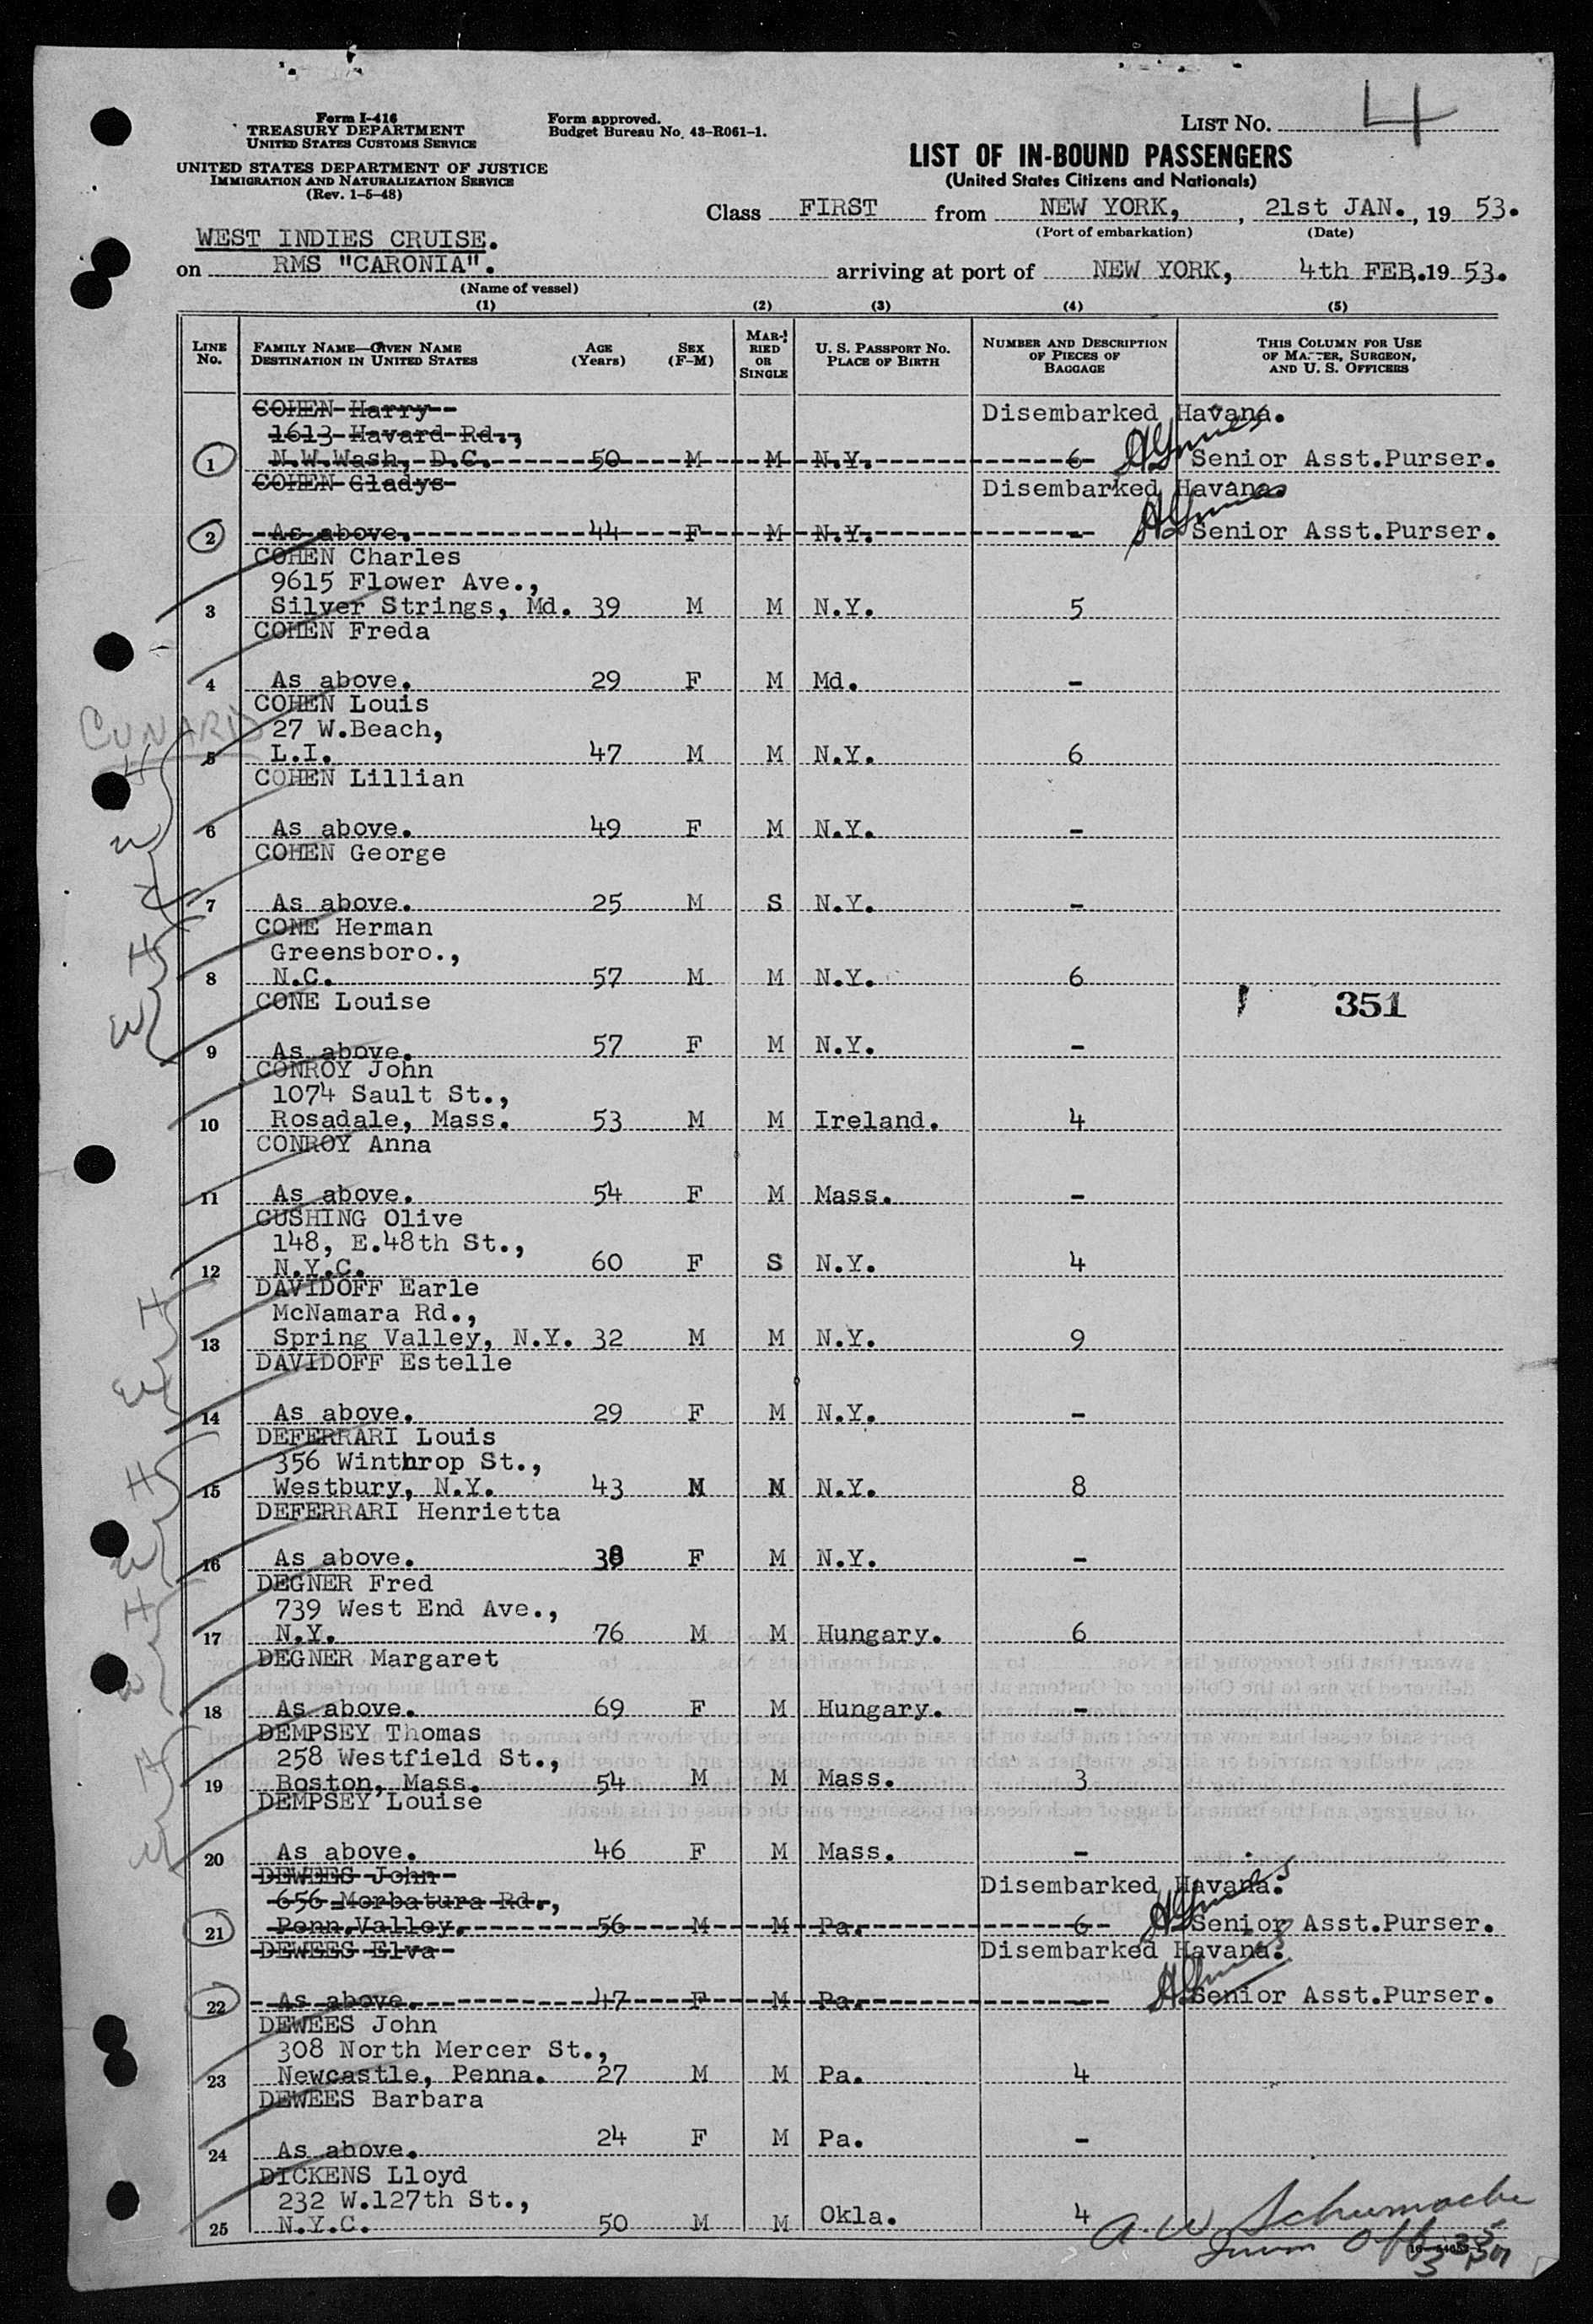 Form I-416
TREASURY DEPARTMENT
UNITED STATES CUSTOMS SERVICE
UNITED STATES DEPARTMENT OF JUSTICE
IMMIGRATION AND NATURALIZATION SERVICE
(Rev. 1-5-48)
Form approved.
Budget Bureau No. 43-R061-1.
LIST NO. 4
LIST OF IN-BOUND PASSENGERS
(United States Citizens and Nationals)
Class FIRST from NEW YORK, , 21st JAN., 19 53.
(Port of embarkation) (Date)
WEST INDIES CRUISE.
on RMS "CARONIA". arriving at port of NEW YORK, 4th FEB,.19 53.
(Name of vessel)
(1) (2) (3) (4) (5)
LINE No. FAMILY NAME—GIVEN NAME DESTINATION IN UNITED STATES AGE (Years) SEX (F-M) MARRIED OR SINGLE U. S. PASSPORT NO. PLACE OF BIRTH NUMBER AND DESCRIPTION OF PIECES OF BAGGAGE THIS COLUMN FOR USE OF MASTER, SURGEON, AND U. S. OFFICERS
COHEN Harry Disembarked Havana.
1613 Havard Rd.,
1 N.W.Wash, D.C. 50 M M N.Y. 6 Senior Asst.Purser.
COHEN Gladys Disembarked Havana.
2 As above. 44 F M N.Y. - Senior Asst.Purser.
COHEN Charles
9615 Flower Ave.,
3 Silver Strings, Md. 39 M M N.Y. 5
COHEN Freda
4 As above. 29 F M Md. -
CUNARD
COHEN Louis
27 W.Beach,
5 L.I. 47 M M N.Y. 6
H
COHEN Lillian
6 As above. 49 F M N.Y. -
W
COHEN George
7 As above. 25 M S N.Y. -
CONE Herman
Greensboro.,
8 N.C. 57 M M N.Y. 6
H
CONE Louise 351
9 As above. 57 F M N.Y. -
W
CONROY John
1074 Sault St.,
10 Rosadale, Mass. 53 M M Ireland. 4
CONROY Anna
11 As above. 54 F M Mass. -
CUSHING Olive
148, E.48th St.,
12 N.Y.C. 60 F S N.Y. 4
DAVIDOFF Earle
McNamara Rd.,
13 Spring Valley, N.Y. 32 M M N.Y. 9
H
DAVIDOFF Estelle
14 As above. 29 F M N.Y. -
W
DEFERRARI Louis
356 Winthrop St.,
15 Westbury, N.Y. 43 M M N.Y. 8
H
DEFERRARI Henrietta
16 As above. 38 F M N.Y. -
W
DEGNER Fred
739 West End Ave.,
17 N.Y. 76 M M Hungary. 6
H
DEGNER Margaret
18 As above. 69 F M Hungary. -
W
DEMPSEY Thomas
258 Westfield St.,
19 Boston, Mass. 54 M M Mass. 3
H
DEMPSEY Louise
20 As above. 46 F M Mass. -
W
DEWEES John Disembarked Havana.
656 Morbatura Rd.,
21 Penn.Valley. 56 M M Pa. 6 Senior Asst.Purser.
DEWEES Elva Disembarked Havana.
22 As above. 47 F M Pa. - Senior Asst.Purser.
DEWEES John
308 North Mercer St.,
23 Newcastle, Penna. 27 M M Pa. 4
DEWEES Barbara
24 As above. 24 F M Pa. -
DICKENS Lloyd
232 W.127th St.,
25 N.Y.C. 50 M M Okla. 4
A. W. Schumacher
Imm Off